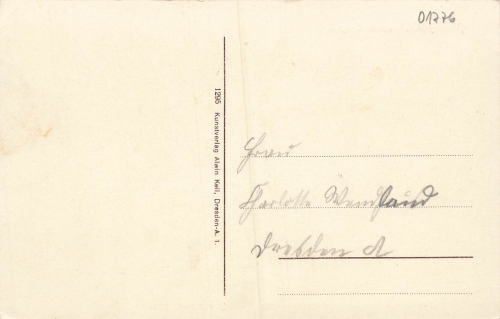 01776
1295 Kunstverlag Alwin Keil, Dresden-A. 1.
Frau
Charlotte Wendland
Dresden A